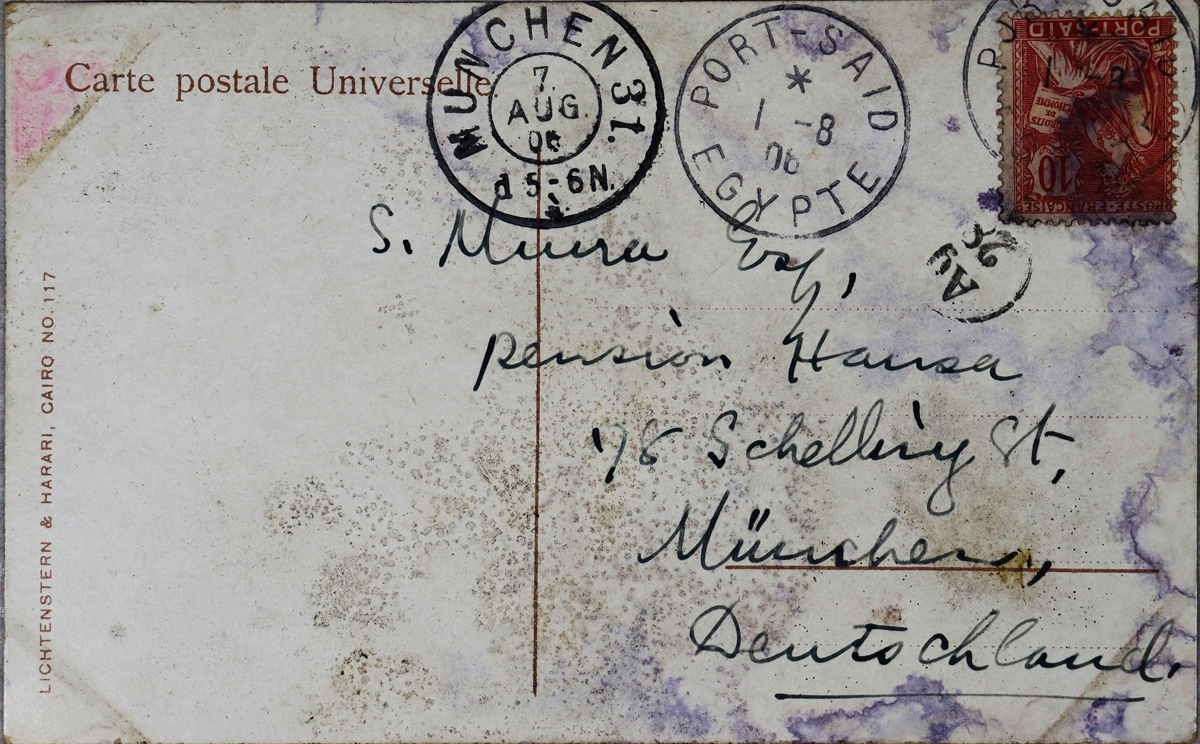 Carte postale Universelle
MÜNCHEN 31.
7.
AUG.
06
5-6N.
PORT-SAID
1 -8
06
EGYPTE
PORT-SAID
DROITS
DE
L'HOMME
10
POSTE FRANÇAISE
S. Miura Esq,
pension Hansa
78 Schelling St,
München,
Deutschland.
LICHTENSTERN & HARARI, CAIRO NO. 117